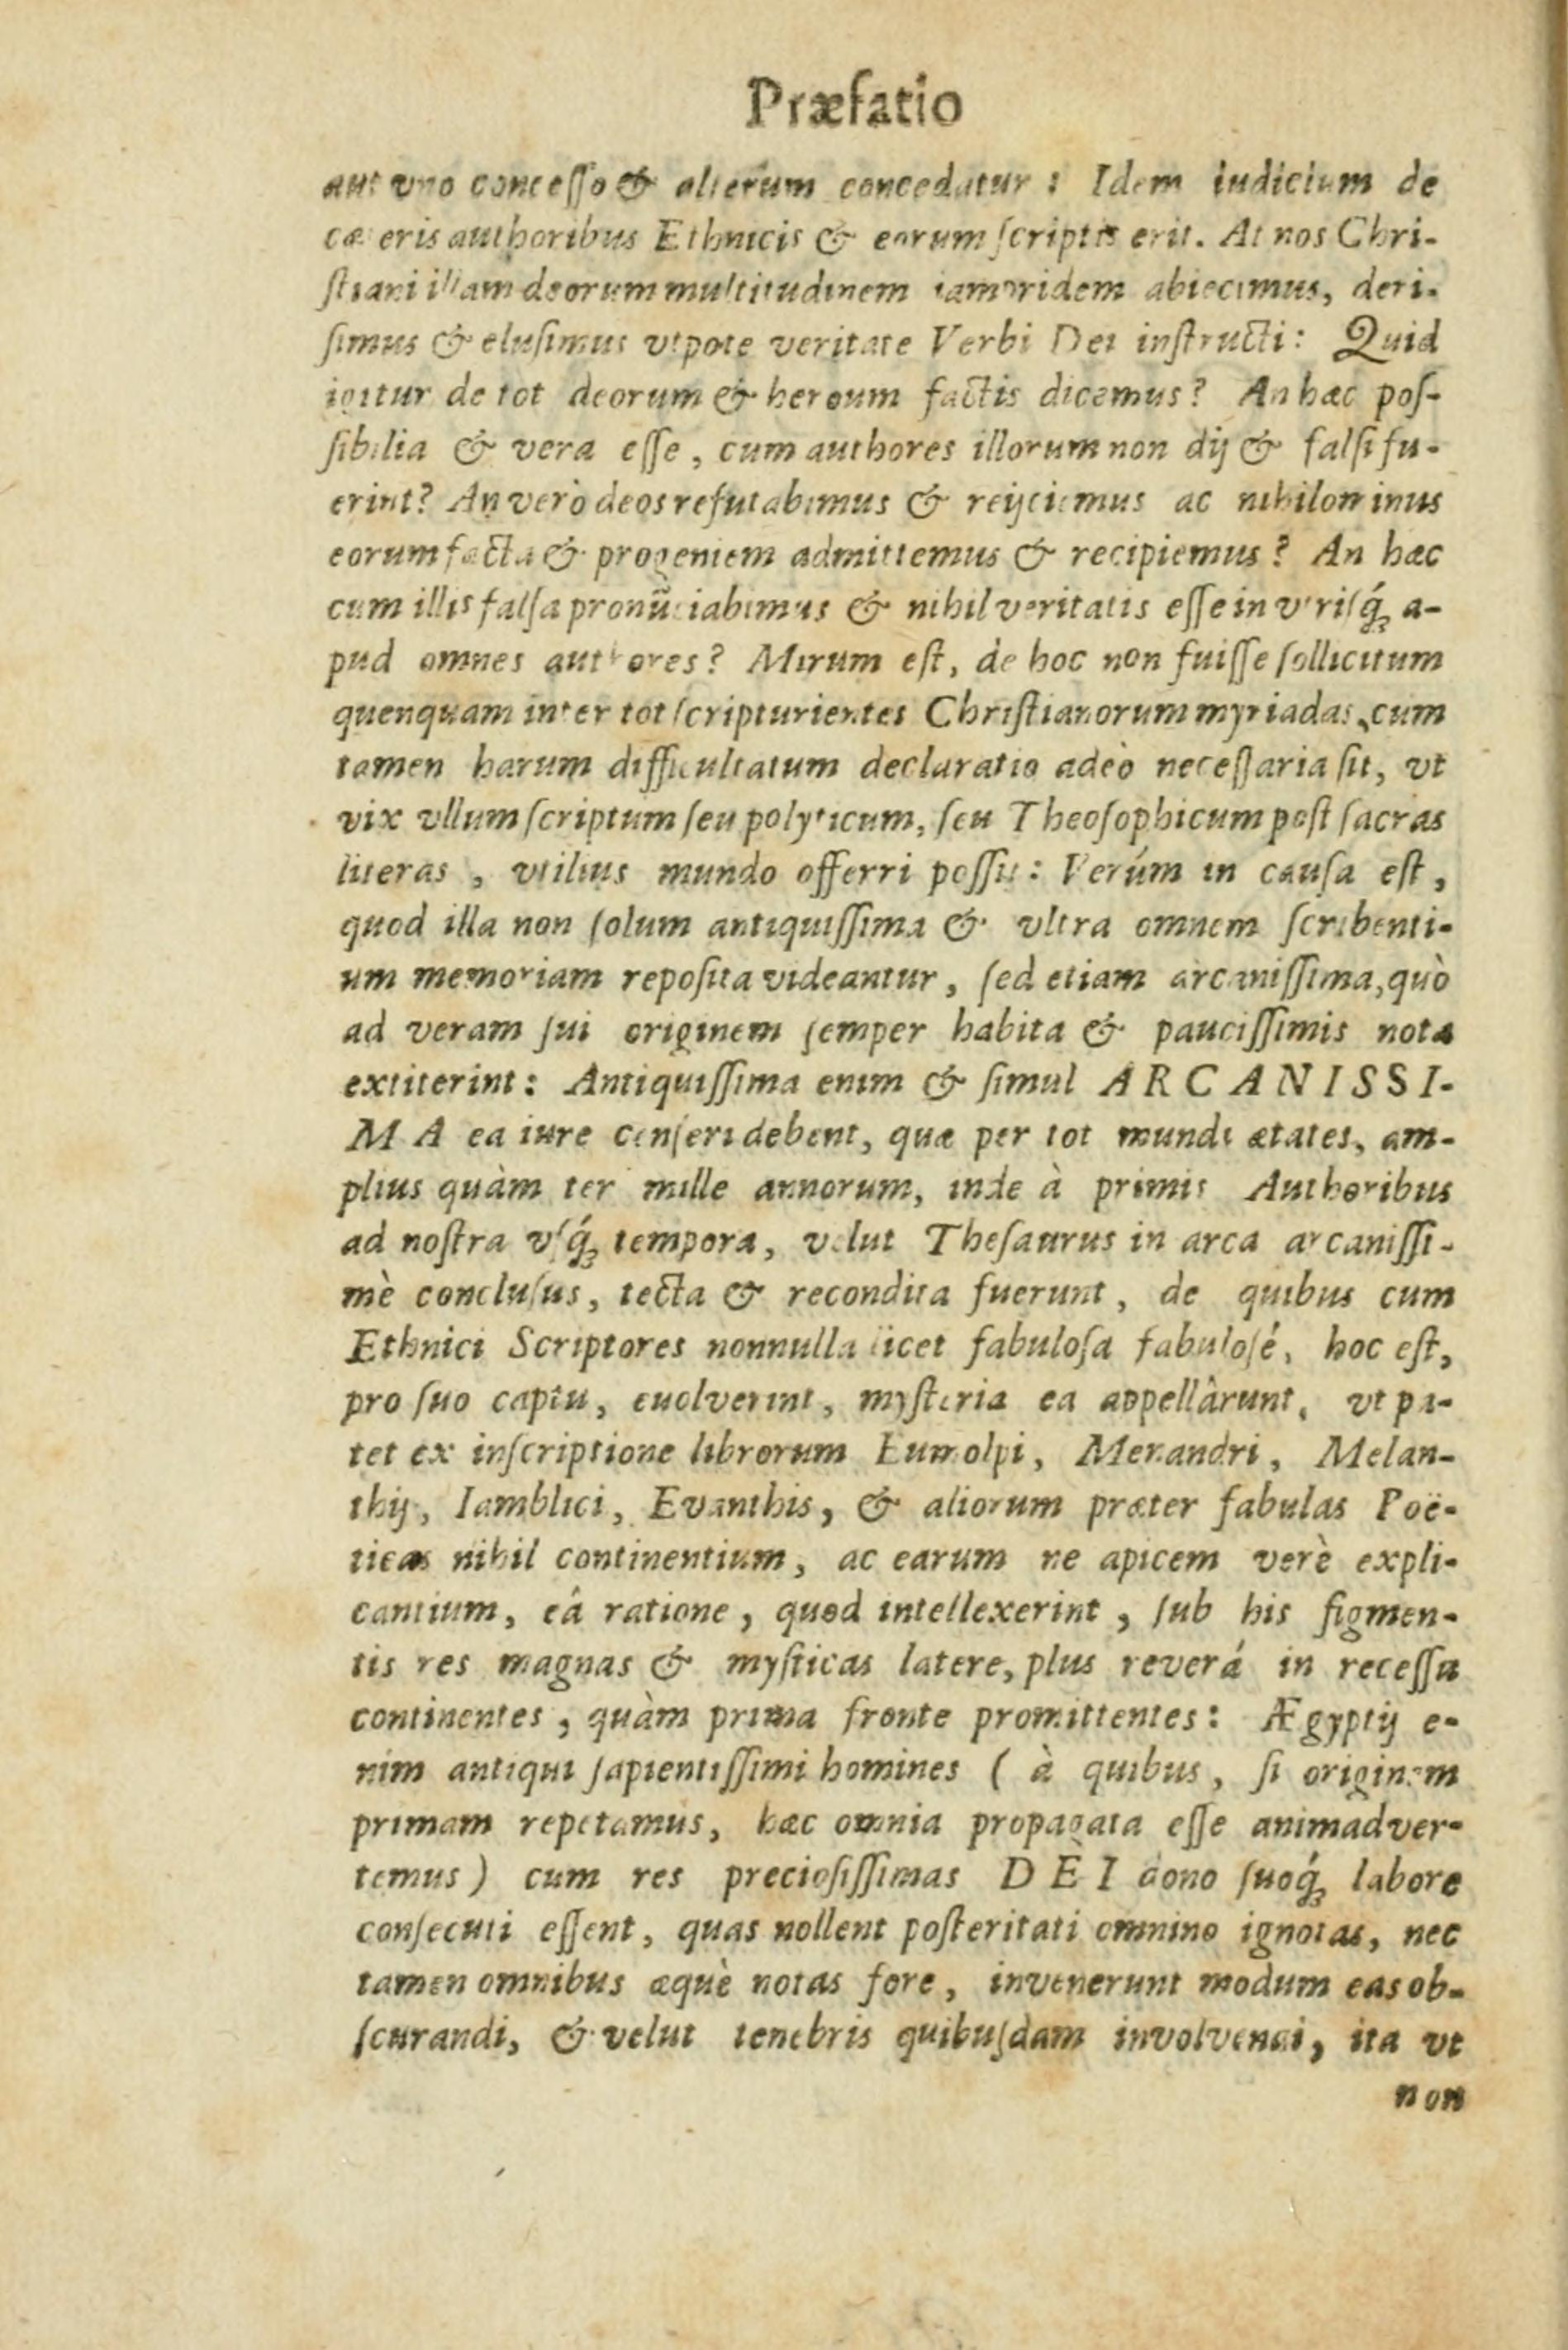 Præfatio
aut vno concesso & alterum concedatur: Idem iudicium de
cæteris authoribus Ethnicis & eorum scriptis erit. At nos Chri-
stiani illam deorum multitudinem iampridem abiecimus, deri-
simus & elusimus vtpote veritate Verbi Dei instructi: Quid
igitur de tot deorum & heroum factis dicemus? An hæc pos-
sibilia & vera esse, cum authores illorum non dij & falsi fu-
erint? An verò deos refutabimus & reijciemus ac nihilominus
eorum facta & progeniem admittemus & recipiemus? An hæc
cum illis falsa pronũciabimus & nihil veritatis esse in vtrisq́; a-
pud omnes authores? Mirum est, de hoc non fuisse sollicitum
quenquam inter tot scripturientes Christianorum myriadas, cum
tamen harum difficultatum declaratio adeò necessaria sit, vt
vix vllum scriptum seu polyticum, seu Theosophicum post sacras
literas, vtilius mundo offerri possit: Verúm in causa est,
quod illa non solum antiquissima & vltra omnem scribenti-
um memoriam reposita videantur, sed etiam arcanissima, quò
ad veram sui originem semper habita & paucissimis nota
extiterint: Antiquissima enim & simul ARCANISSI-
MA ea iure censeri debent, quæ per tot mundi ætates, am-
plius quàm ter mille annorum, inde à primis Authoribus
ad nostra vsq́; tempora, velut Thesaurus in arca arcanissi-
mè conclusus, tecta & recondita fuerunt, de quibus cum
Ethnici Scriptores nonnulla licet fabulosa fabulosé, hoc est,
pro suo captu, euolverint, mysteria ea appellârunt, vt pa-
tet ex inscriptione librorum Eumolpi, Menandri, Melan-
thij, Iamblici, Evanthis, & aliorum præter fabulas Poë-
ticas nihil continentium, ac earum ne apicem verè expli-
cantium, eá ratione, quod intellexerint, sub his figmen-
tis res magnas & mysticas latere, plus reverá in recessu
continentes, quàm prima fronte promittentes: Ægyptij e-
nim antiqui sapientissimi homines (à quibus, si originem
primam repetamus, hæc omnia propagata esse animadver-
temus) cum res preciosissimas DÈI dono suoq́; labore
consecuti essent, quas nollent posteritati omnino ignotas, nec
tamen omnibus æquè notas fore, invenerunt modum eas ob-
scurandi, & velut tenebris quibusdam involvendi, ita vt
non